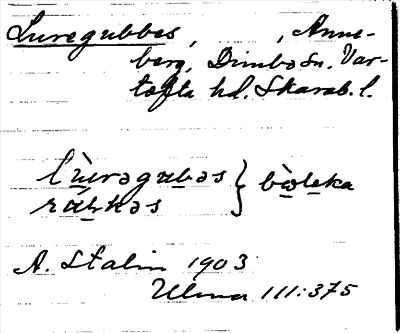 Luregubbes, , Anne-
berg, Dimbo Sn. Var-
tofta hd. Skarab. l.
lùrəgubəs } bòleka
rálkəs
A. Stalin 1903
Ulma 111:375